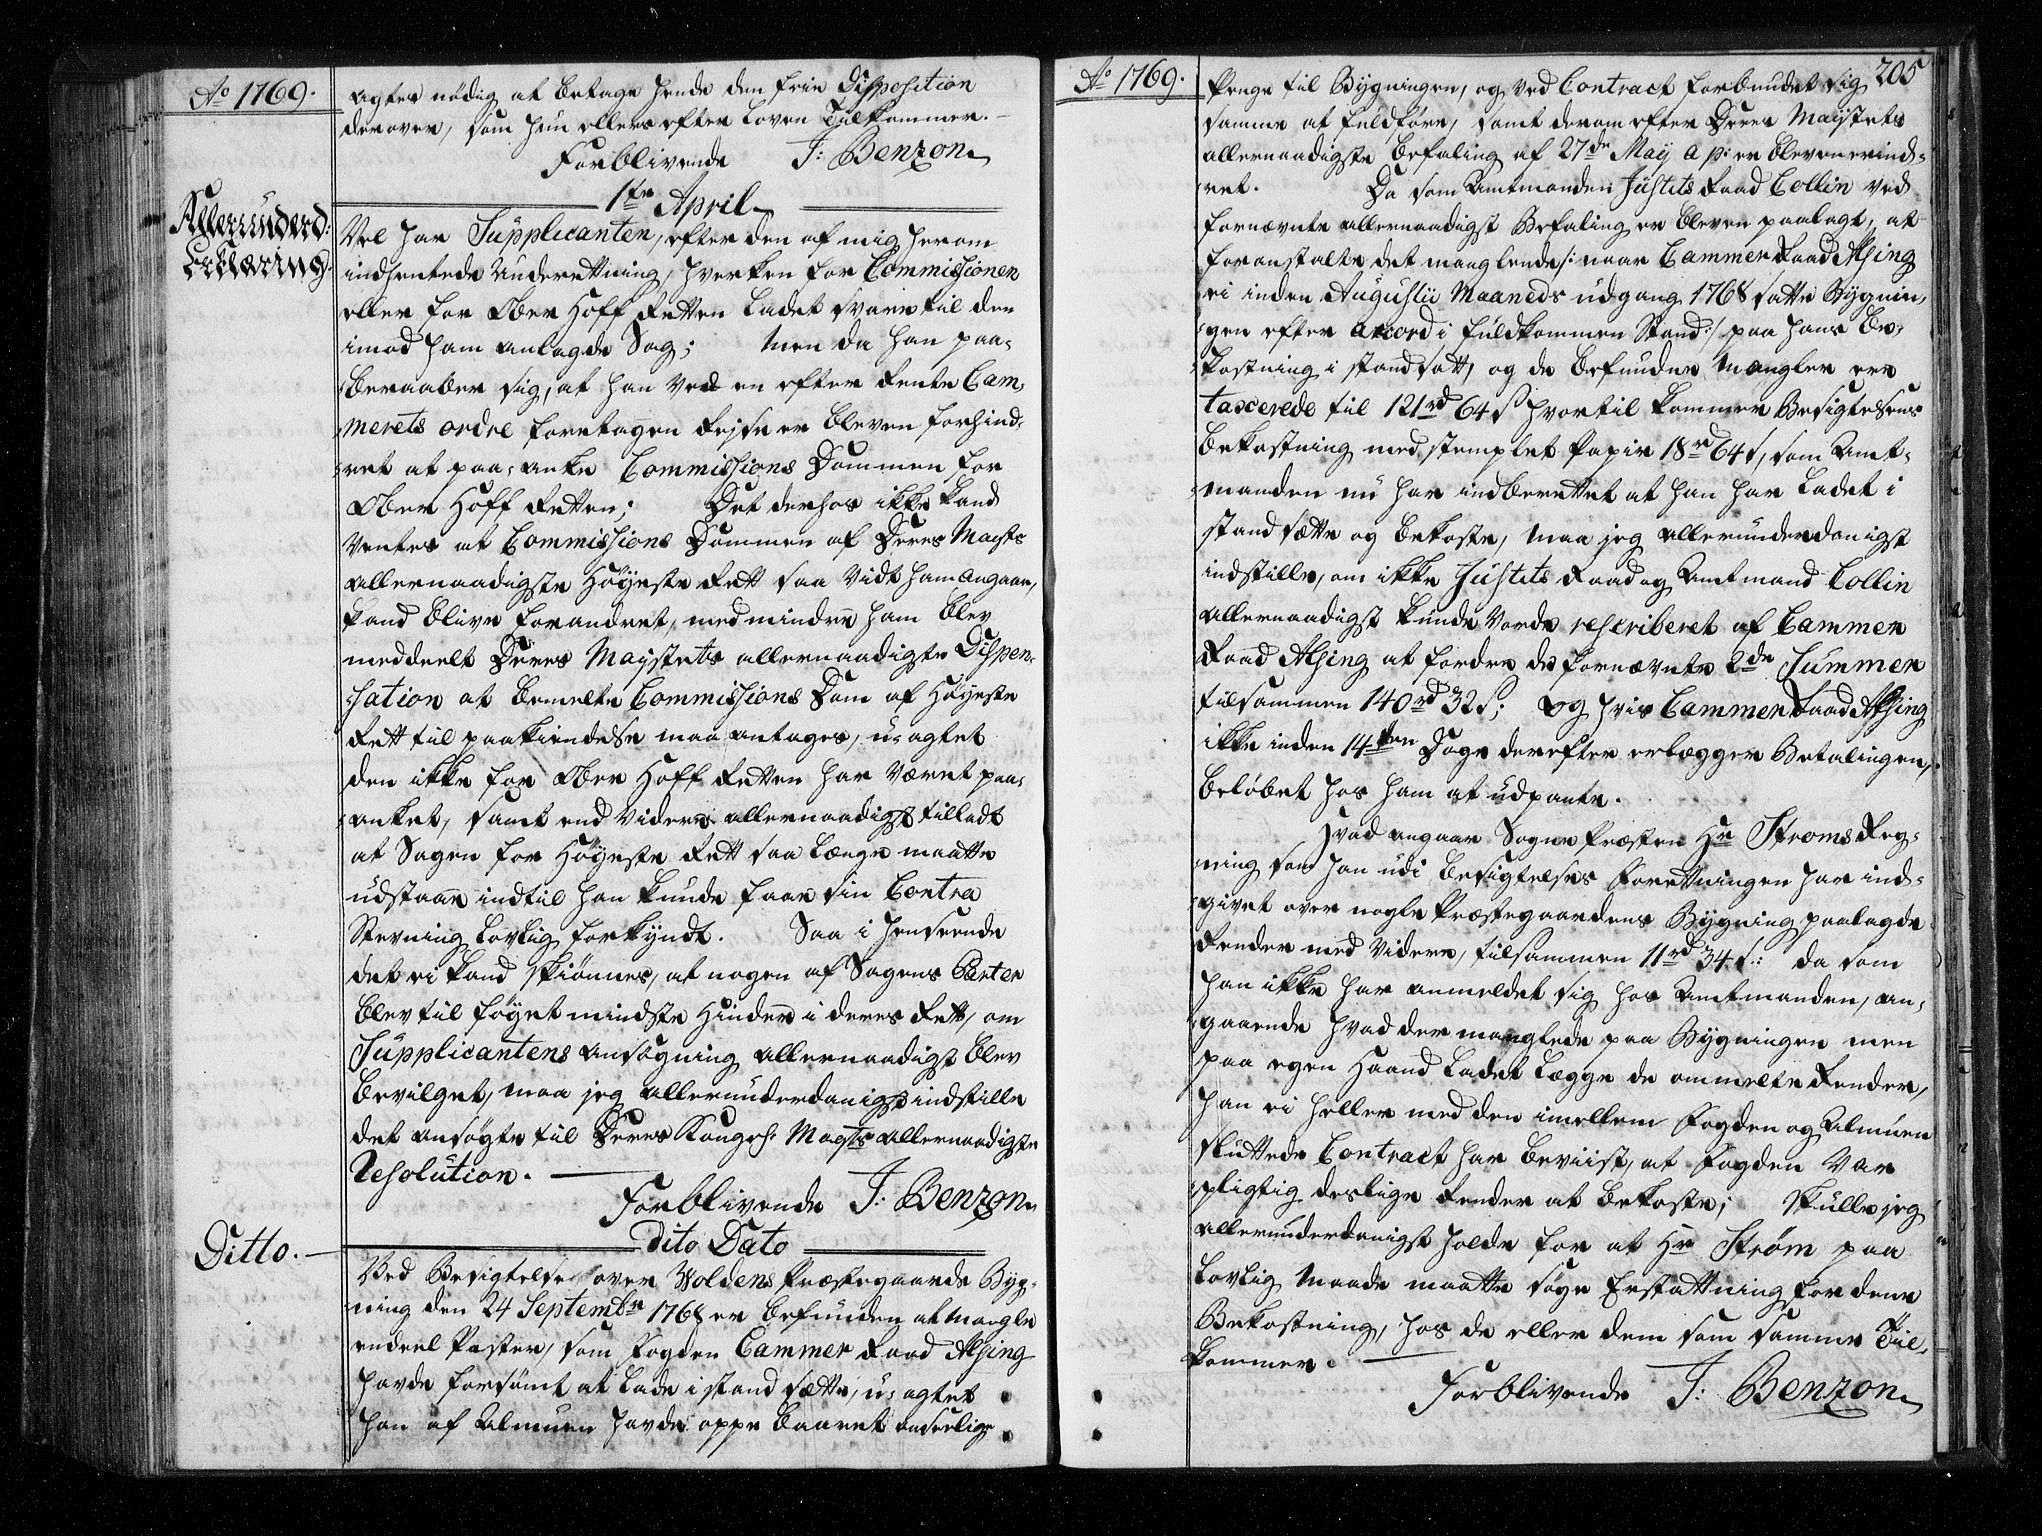 Ao 1769.
agter nödig at betage hende den frie Disposition
derover, som hun ellers efter Loven Tilkommer.
Forblivende J: Benzon
1ste April
Allerunderd:
Erklæring.
Vel har Supplicanten, efter den af mig herom
indhentede Underettning, hverken for Commissionen
eller for Ober Hoff Retten ladet svare til den
imod ham anlagde Sag; Men da han paa-
beraaber sig, at han ved en efter Rente Cam-
merets ordre foretagen Rejse er bleven forhind-
ret at paa-anke Commissions Dommen for
Ober Hoff Retten; Det derhos ikke kand
ventes at Commissions Dommen af Deres Maysts
allernaadigste Höyeste Rett saa vidt ham angaar,
kand blive forandret, med mindre ham blev
meddeelt Deres Maystets allernaadigste Dispen-
sation at bemelte Commissions Dom af Höyeste
Rett til paakiendelse maa antages, u-agtet
den ikke for Ober Hoff Retten har været paa-
anket, samt end videre allernaadigst tilladt
at Sagen for Höyeste Rett saa længe maatte
udstaae indtil han kunde faae sin Contra
Stevning lovlig forkyndt. Saa i henseende
det ei kand skiönnes, at nogen af Sagens Parter
blev til föyet mindste Hinder i deres Rett, om
Supplicantens ansögning allernaadigst blev
bevilget, maa jeg allerunderdanigst indstille
det ansögte til Deres Kongel: Maysts allernaadigste
Resolution.
Forblivende J: Benzon
Ditto.
Dito Dato
Ved Besigtelse over Woldens Præstegaards Byg-
ning den 24 Septembr 1768 er befunden at mangle
endeel Poster, som Fogden Cammer Raad Alsing
havde forsömt at lade i stand sætte, u-agtet
han af Almuen havde oppebaaret anseelige
Ao 1769.
205
Penge til Bygningen, og ved Contract forbundet sig
samme at fuldföre, samt derom efter Deres Maystets
allernaadigste befaling af 27de May a p: er bleven erind-
ret. Da som Amtmanden Justits Raad Collin ved
fornævnte allernaadigst Befaling er bleven paalagt, at
foranstalte det manglende /: naar Cammer Raad Alsing
ei inden Augustii Maaneds udgang 1768 satte Bygnin-
gen efter accord i fuldkommen Stand :/ paa hans be-
kostning i stand satt, og de befundne Mangler ere
taxcerede til 121rd 64s hvortil kommer Besigtelsens
bekostning med stemplet Papir 18rd 64s, som Amt-
manden nu har indberettet at han har ladet i
stand sætte og bekoste, maa jeg allerunderdanigst
indstille, om ikke Justits Raad og Amtmand Collin
allernaadigst kunde vorde rescriberet af Cammer
Raad Alsing at fordre de fornævnte 2de Summer
tilsammen 140rd 32s; og hvis Cammer Raad Alsing
ikke inden 14ten Dage derefter erlægger Betalingen,
belöbet hos ham at udpante.
Hvad angaar Sogne Præsten Hr Ströms Reg-
ning som han udi besigtelses Forettningen har ind-
givet over nogle Præstegaardens Bygning paalagde
Render med videre, tilsammen 11rd 34s: da som
han ikke har anmeldet sig hos Amtmanden, an-
gaaende hvad der manglede paa Bygningen men
paa egen Haand ladet lægge de ommelte Render,
han ei heller med den imellem Fogden og Almuen
sluttede Contract har beviist, at Fogden var
pligtig deslige Render at bekoste; skulle jeg
allerunderdanigst holde for at Hr Ström paa
lovlig Maade maatte söge Erstattning for dene
Bekostning, hos de eller dem som samme Til-
kommer.
Forblivende J: Benzon